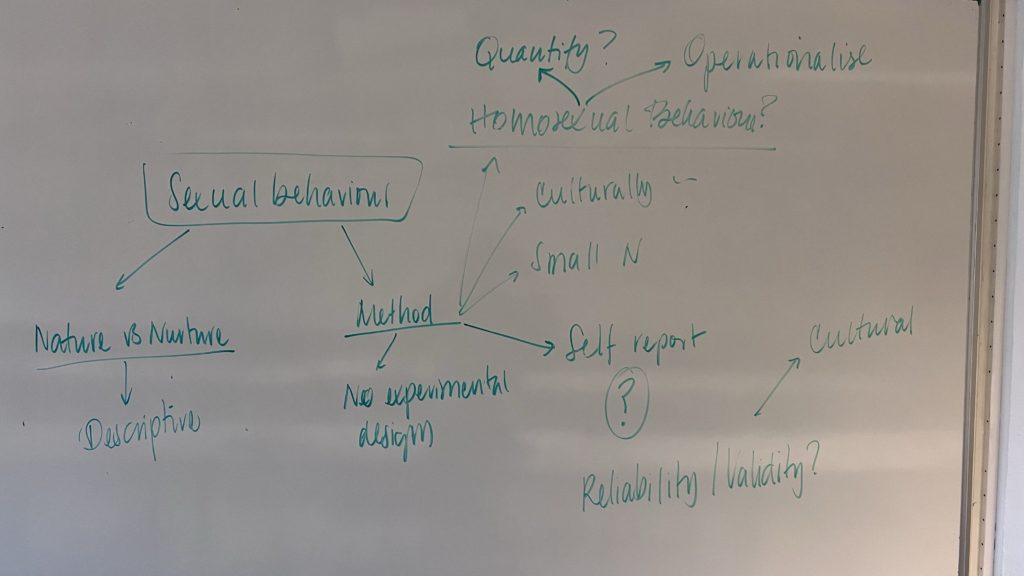 Quantify?
Operationalise
Homosexual Behaviour?
Sexual behaviour
Culturally
Small N
Method
Nature vs Nurture
Self report
Cultural
No experimental
design
?
Descriptive
Reliability / Validity?